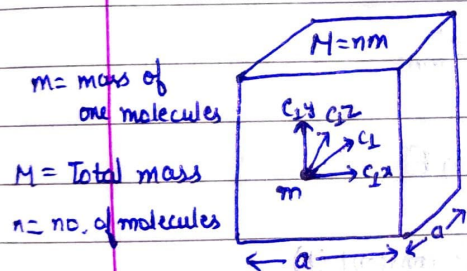 m= mass of
one molecules
M = Total mass
n= no. of molecules
M=nm
C₁y
C₁z
C₁
C₁x
m
a
a